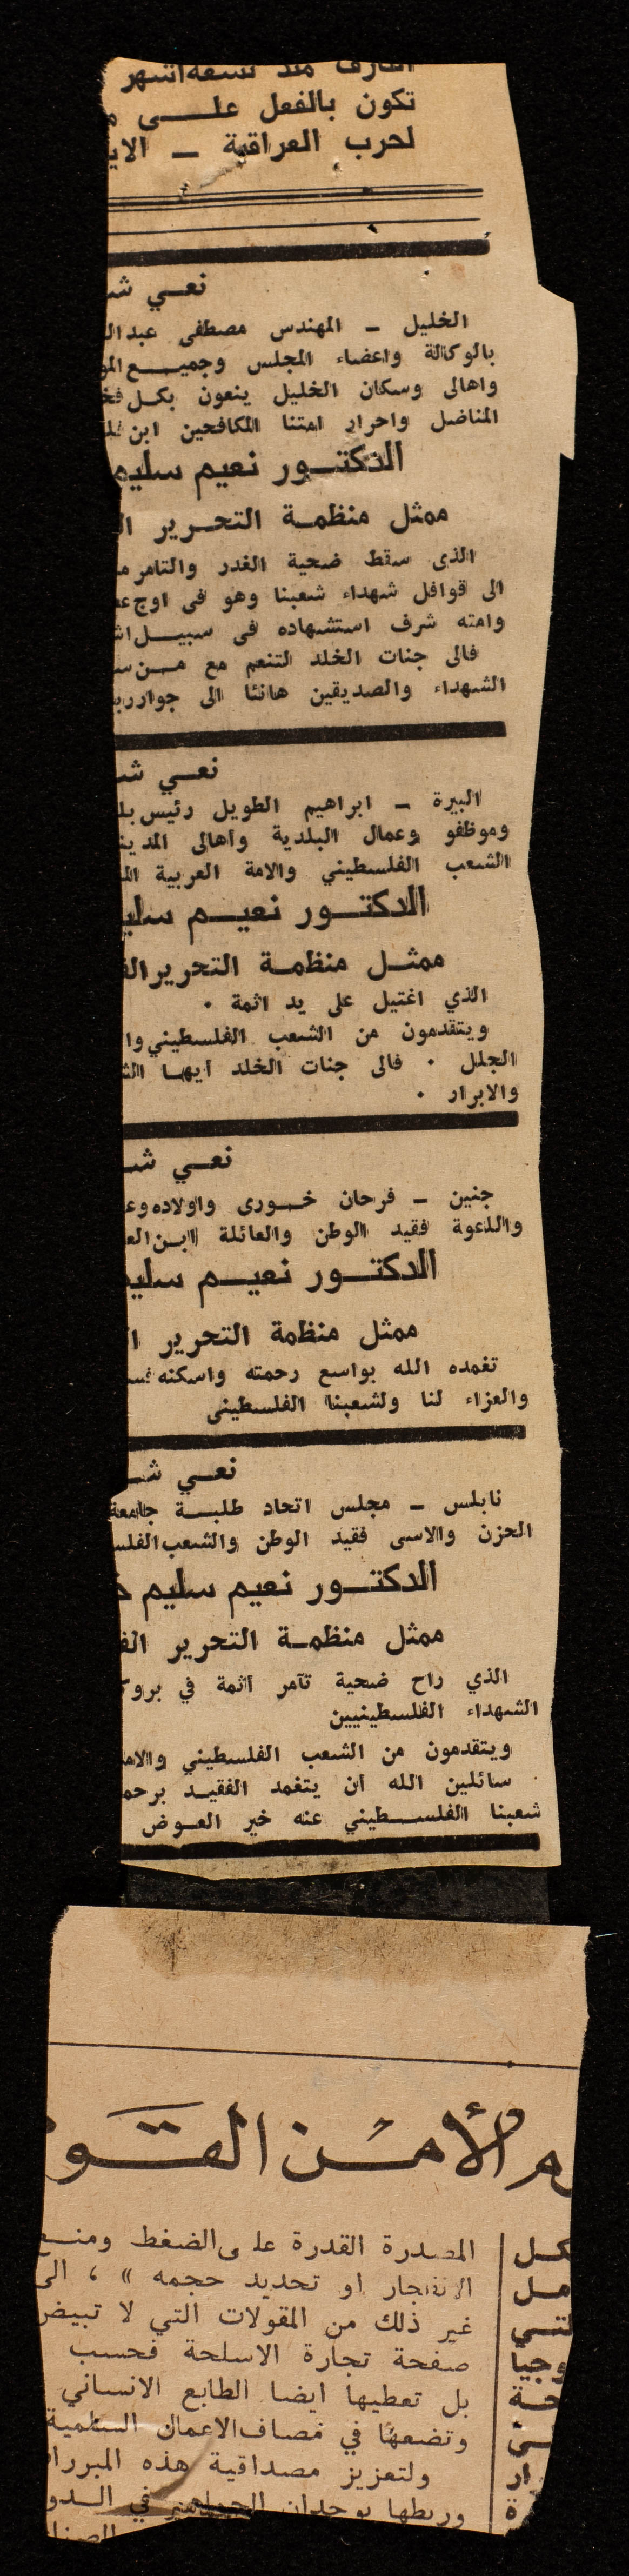 منذ تسعة اشهر
تكون بالفعل علـــى
لحرب العراقية ــ
نعـــي
الخليل ــ المهندس مصطفى
بالوكالة واعضاء المجلس وجميـــع
واهالى وسكان الخليل ينعون بكـــل
المناضل واحرار امتنا المكافحين ابن
الدكتـــور نعيم سليم
ممثل منظمـة التحـرير
الذى سقط ضحية الغدر والتامر
الى قوافل شهداء شعبنا وهو فى اوج
وامته شرف استشهاده فى سبيـــل
فالى جنات الخلد لتنعم مع مـــن
الشهداء والصديقين هانئا الى جوار
نعـــي
البيرة ــ ابراهيم الطويل رئيس
وموظفو وعمال البلدية واهالى
الشعب الفلسطيني والامة العربية
الدكتـــور نعيـــم
ممثـــل منظمـة التحرير
الذي اغتيل على يد اثمة ٠
ويتقدمون من الشعب الفلسطيني
الجلل ٠ فالى جنات الخلد ايهـا
والابرار ٠
نعـــي
جنين ــ فرحان خـــورى واولاده
والدعوة فقيد الوطن والعائلة ابـــن
الدكتـــور نعيـــم سليم
ممثل منظمة التحرير
تغمده الله بواسع رحمته واسكنه
والعزاء لنا ولشعبنا الفلسطينى
نعـــي
نابلس ــ مجلس اتحاد طلبـــة جامعة
الحزن والاسى فقيد الوطن والشعب
الدكتـــور نعيم سليم
ممثل منظمـة التحرير
الذي راح ضحية تآمر اثمة في
الشهداء الفلسطينيين
ويتقدمون من الشعب الفلسطيني
سائلين الله ان يتغمد الفقيـد
شعبنا الفلســـطيني عنه خير العـوض
الأمـــن
كـل
مـل
لتـــي
وجيا
حـة
ار
ة
المصدرة القدرة على الضغط ومنـــع
الانفجار او تحديد حجمه » ، الى
غير ذلك من المقولات التي لا تبيض
صفحة تجارة الاسلحة فحسب
بل تعطيها ايضا الطابع الانساني
وتضعها في مصاف الاعمال السلمية
ولتعزيز مصداقية هذه
وربطها بوجدان الجماهير في